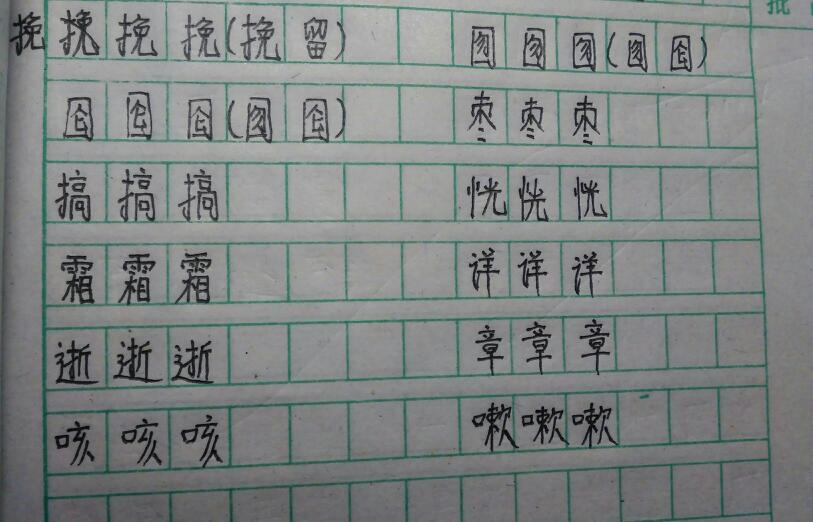 挽挽挽挽(挽留) 囫囫囫(囫囵)
囵囵囵(囫囵) 枣枣枣
搞搞搞 恍恍恍
霜霜霜 详详详
逝逝逝 章章章
咳咳咳 嗽嗽嗽